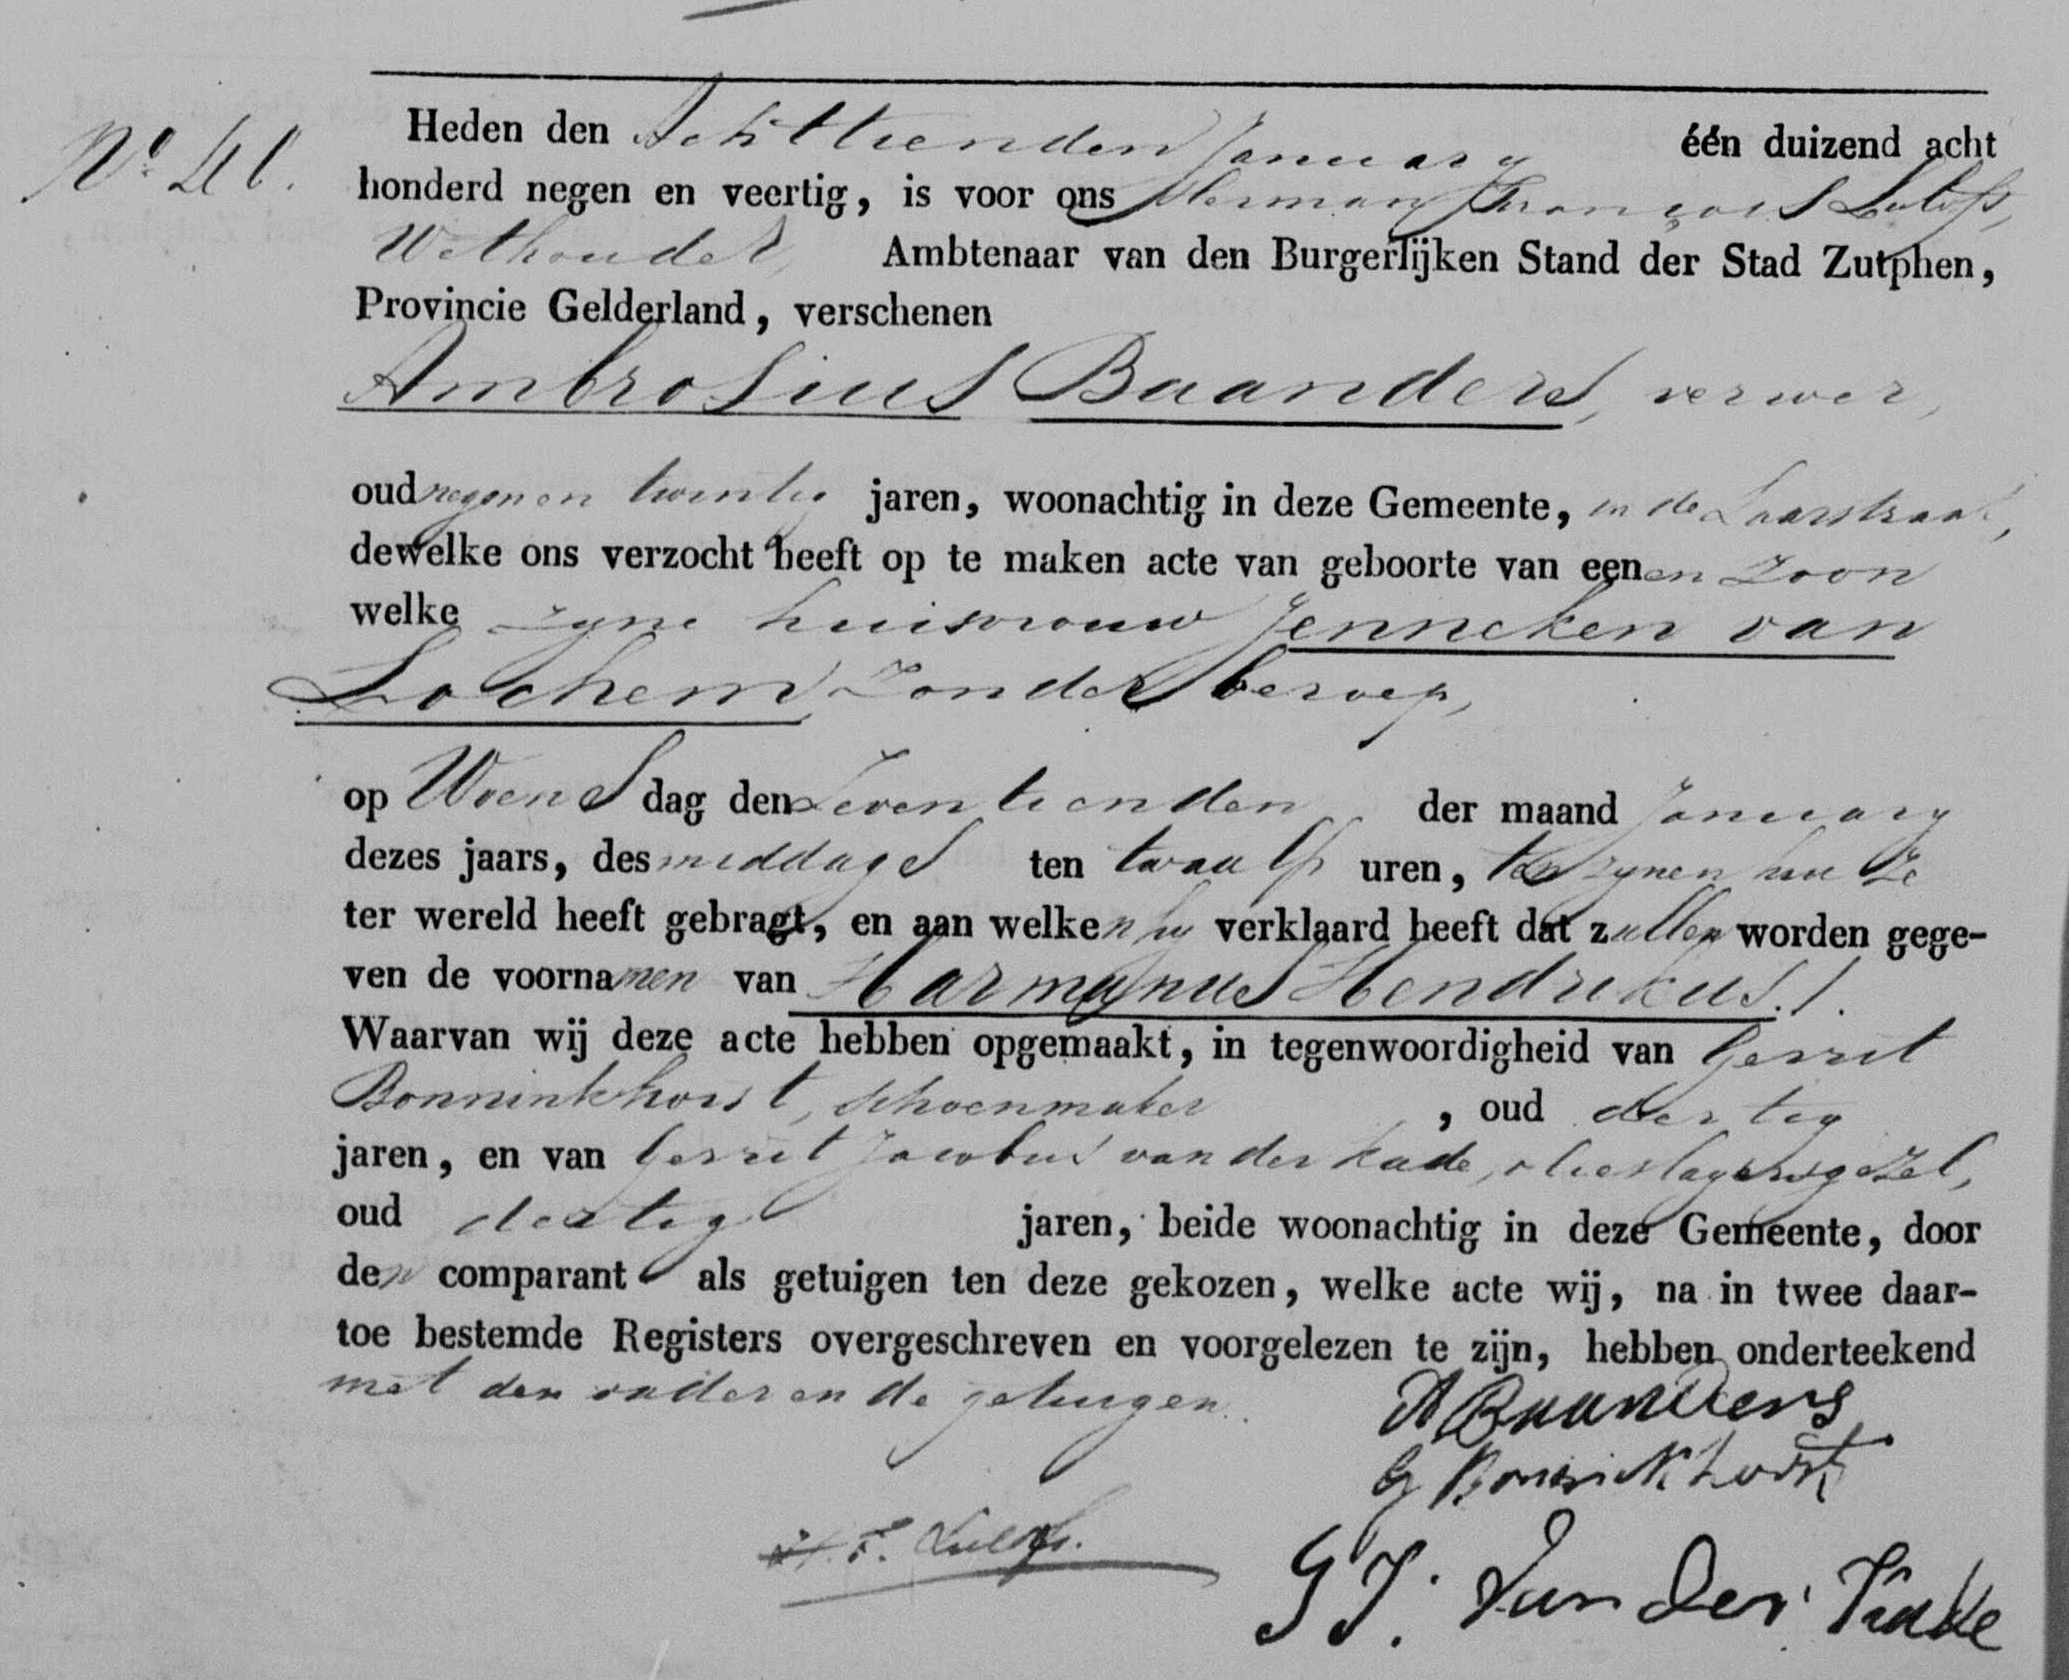 No 41.
Heden den Achttienden January één duizend acht
honderd negen en veertig, is voor ons Herman François Lulofs,
Wethouder, Ambtenaar van den Burgerlijken Stand der Stad Zutphen,
Provincie Gelderland, verschenen
Ambrosius Baanders, verwer,
oud negen en twintig jaren, woonachtig in deze Gemeente, in de Laarstraat,
dewelke ons verzocht heeft op te maken acte van geboorte van eenen zoon
welke zyne huisvrouw Jenneken van
Lochem, zonder beroep,
op Woensdag den Zeventienden der maand January
dezes jaars, des middags ten twaalf uren, ten zynen huize
ter wereld heeft gebragt, en aan welken hy verklaard heeft dat zullen worden gege-
ven de voornamen van Harmanus Hendrikus./.
Waarvan wij deze acte hebben opgemaakt, in tegenwoordigheid van Gerrit
Bonninkhorst, schoenmaker, oud dertig
jaren, en van Gerrit Jacobus van der Kade, olieslagersgezel,
oud dertig jaren, beide woonachtig in deze Gemeente, door
den comparant als getuigen ten deze gekozen, welke acte wij, na in twee daar-
toe bestemde Registers overgeschreven en voorgelezen te zijn, hebben onderteekend
met den vader en de getuigen.
A Baanders
G Bonninkhorst
H. F. Lulofs.
G J. van der Kade